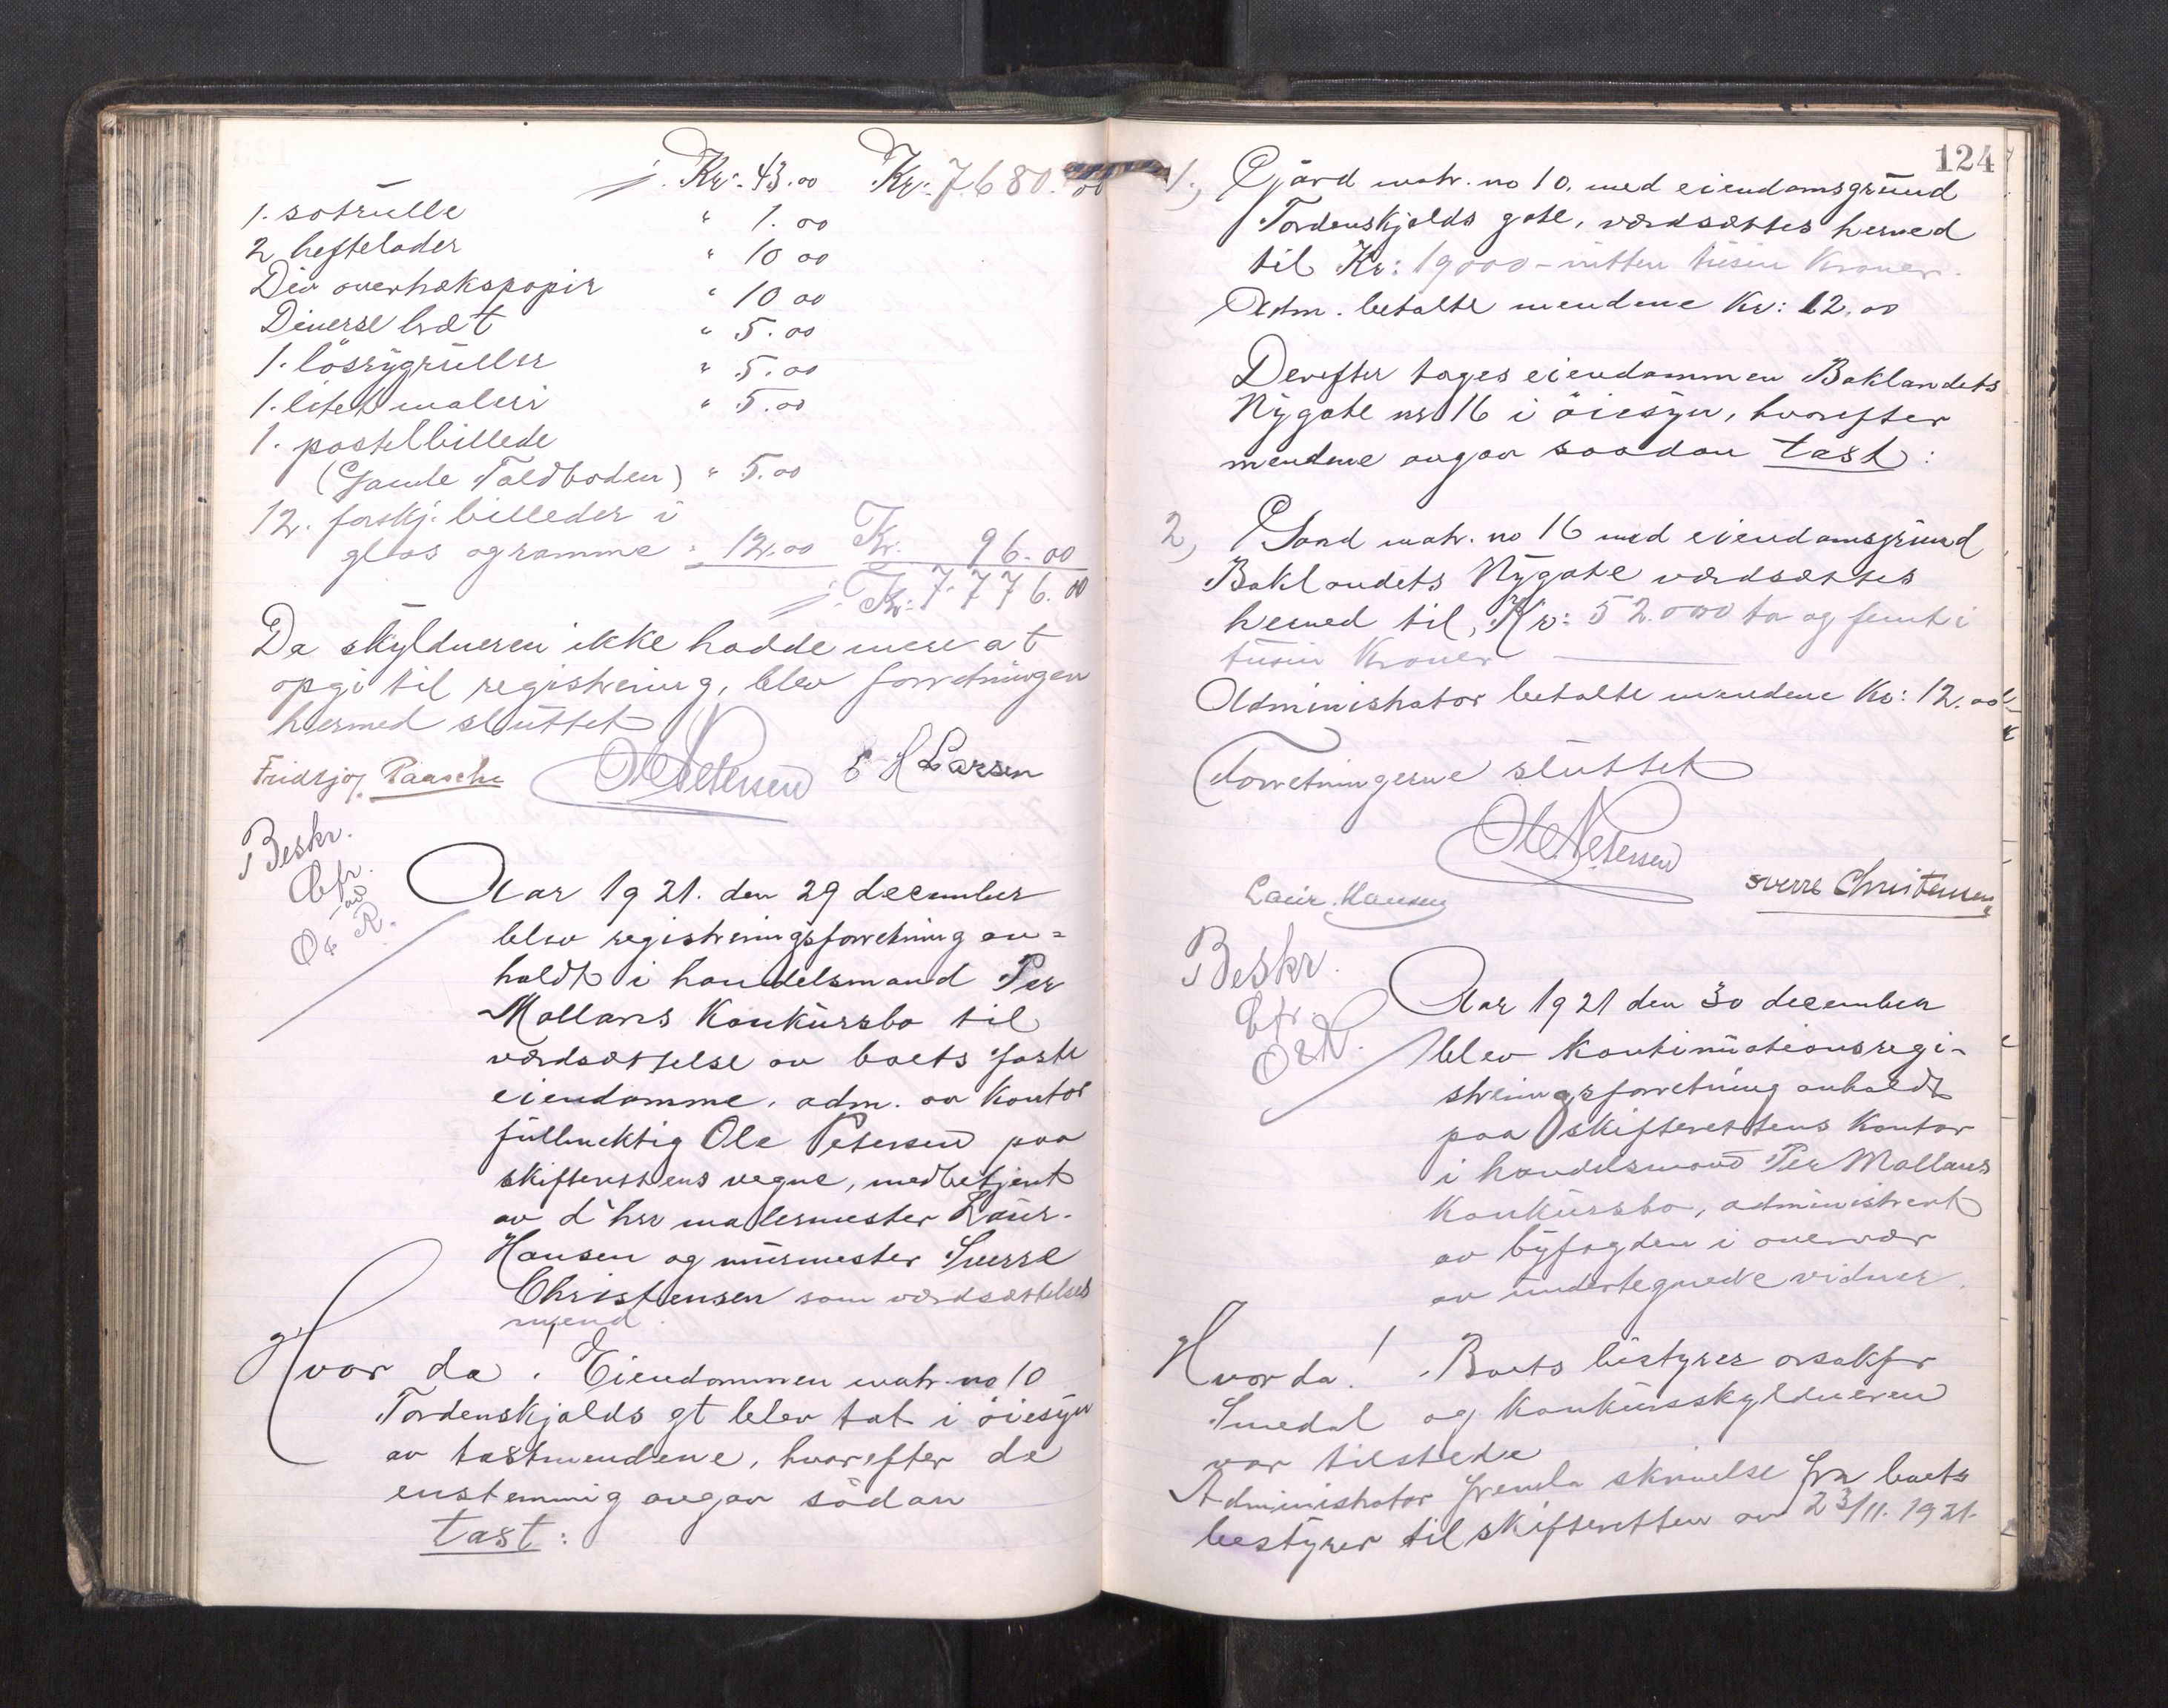 ./. Kr. 43.00 Kr. 7.680.00
1. sotrulle " 1.00
2 heftelader " 10 00
Div overtrækspapir " 10 00
Diverse bræt " 5.00
1. " 5.00
1. litet maleri " 5.00
1. pastelbillede
(Gamle Toldboden) " 5.00
12. forskj. billeder i
glas og ramme " 12.00 Kr. 96.00
./. Kr: 7.776.00
Da skyldneren ikke hadde mere at
opgi til registrering, blev forretningen
hermed sluttet
Fridtjof Paasche Ole Petersen E H Larsen
Beskr.
Efr.
av
O & R.
Aar 1921. den 29 december
blev registreringsforretning an=
holdt i handelsmand Per
Mollans Konkursbo til
værdsættelse av boets faste
eiendomme, adm. av Kontor
fuldmektig Ole Petersen paa
skifterettens vegne, medbetjent
av d'hrr malermester Laur.
Hansen og murmester Sverre
Christensen som værdsættelses
mænd.
Hvor da! Eiendommen matr. no 10
Tordenskjolds gt blev tat i öiesyn
av takstmendene, hvorefter de
enstemmig avgav sådan
takst:
124
1, Gjård matr. no 10. med eiendomsgrund
Tordenskjolds gate, værdsættes herved
til Kr: 19000 – nitten tusen Kroner.
Adm. betalte mendene Kr: 12.00
Derefter tages eiendommen Baklandets
Nygate nr 16 i öiesyn, hvorefter
mendene avgav saadan takst:
2, Gaard matr. no 16 med eiendomsgrund
Baklandets Nygate værdsættes
herved til, Kr: 52.000 to og femti
tusen Kroner
Administrator betalte mendene Kr: 12.00
Forretningerne sluttet
Ole Petersen
Laur. Hansen Sverre Christensen
Beskr.
Efr.
O & R.
Aar 1921 den 30 december
blev Kontinuationsregi-
streringsforretning anholdt
paa skifterettens Kontor
i handelsmand Per Mollans
Konkursbo, administrert
av byfogden i overvær
av undertegnede vidner.
Hvor da! Boets bestyrer orsakfr
Smedal og Konkursskyldneren
var tilstede
Administrator fremla skrivelse fra boets
bestyrer til skifteretten av 23/11. 1921.